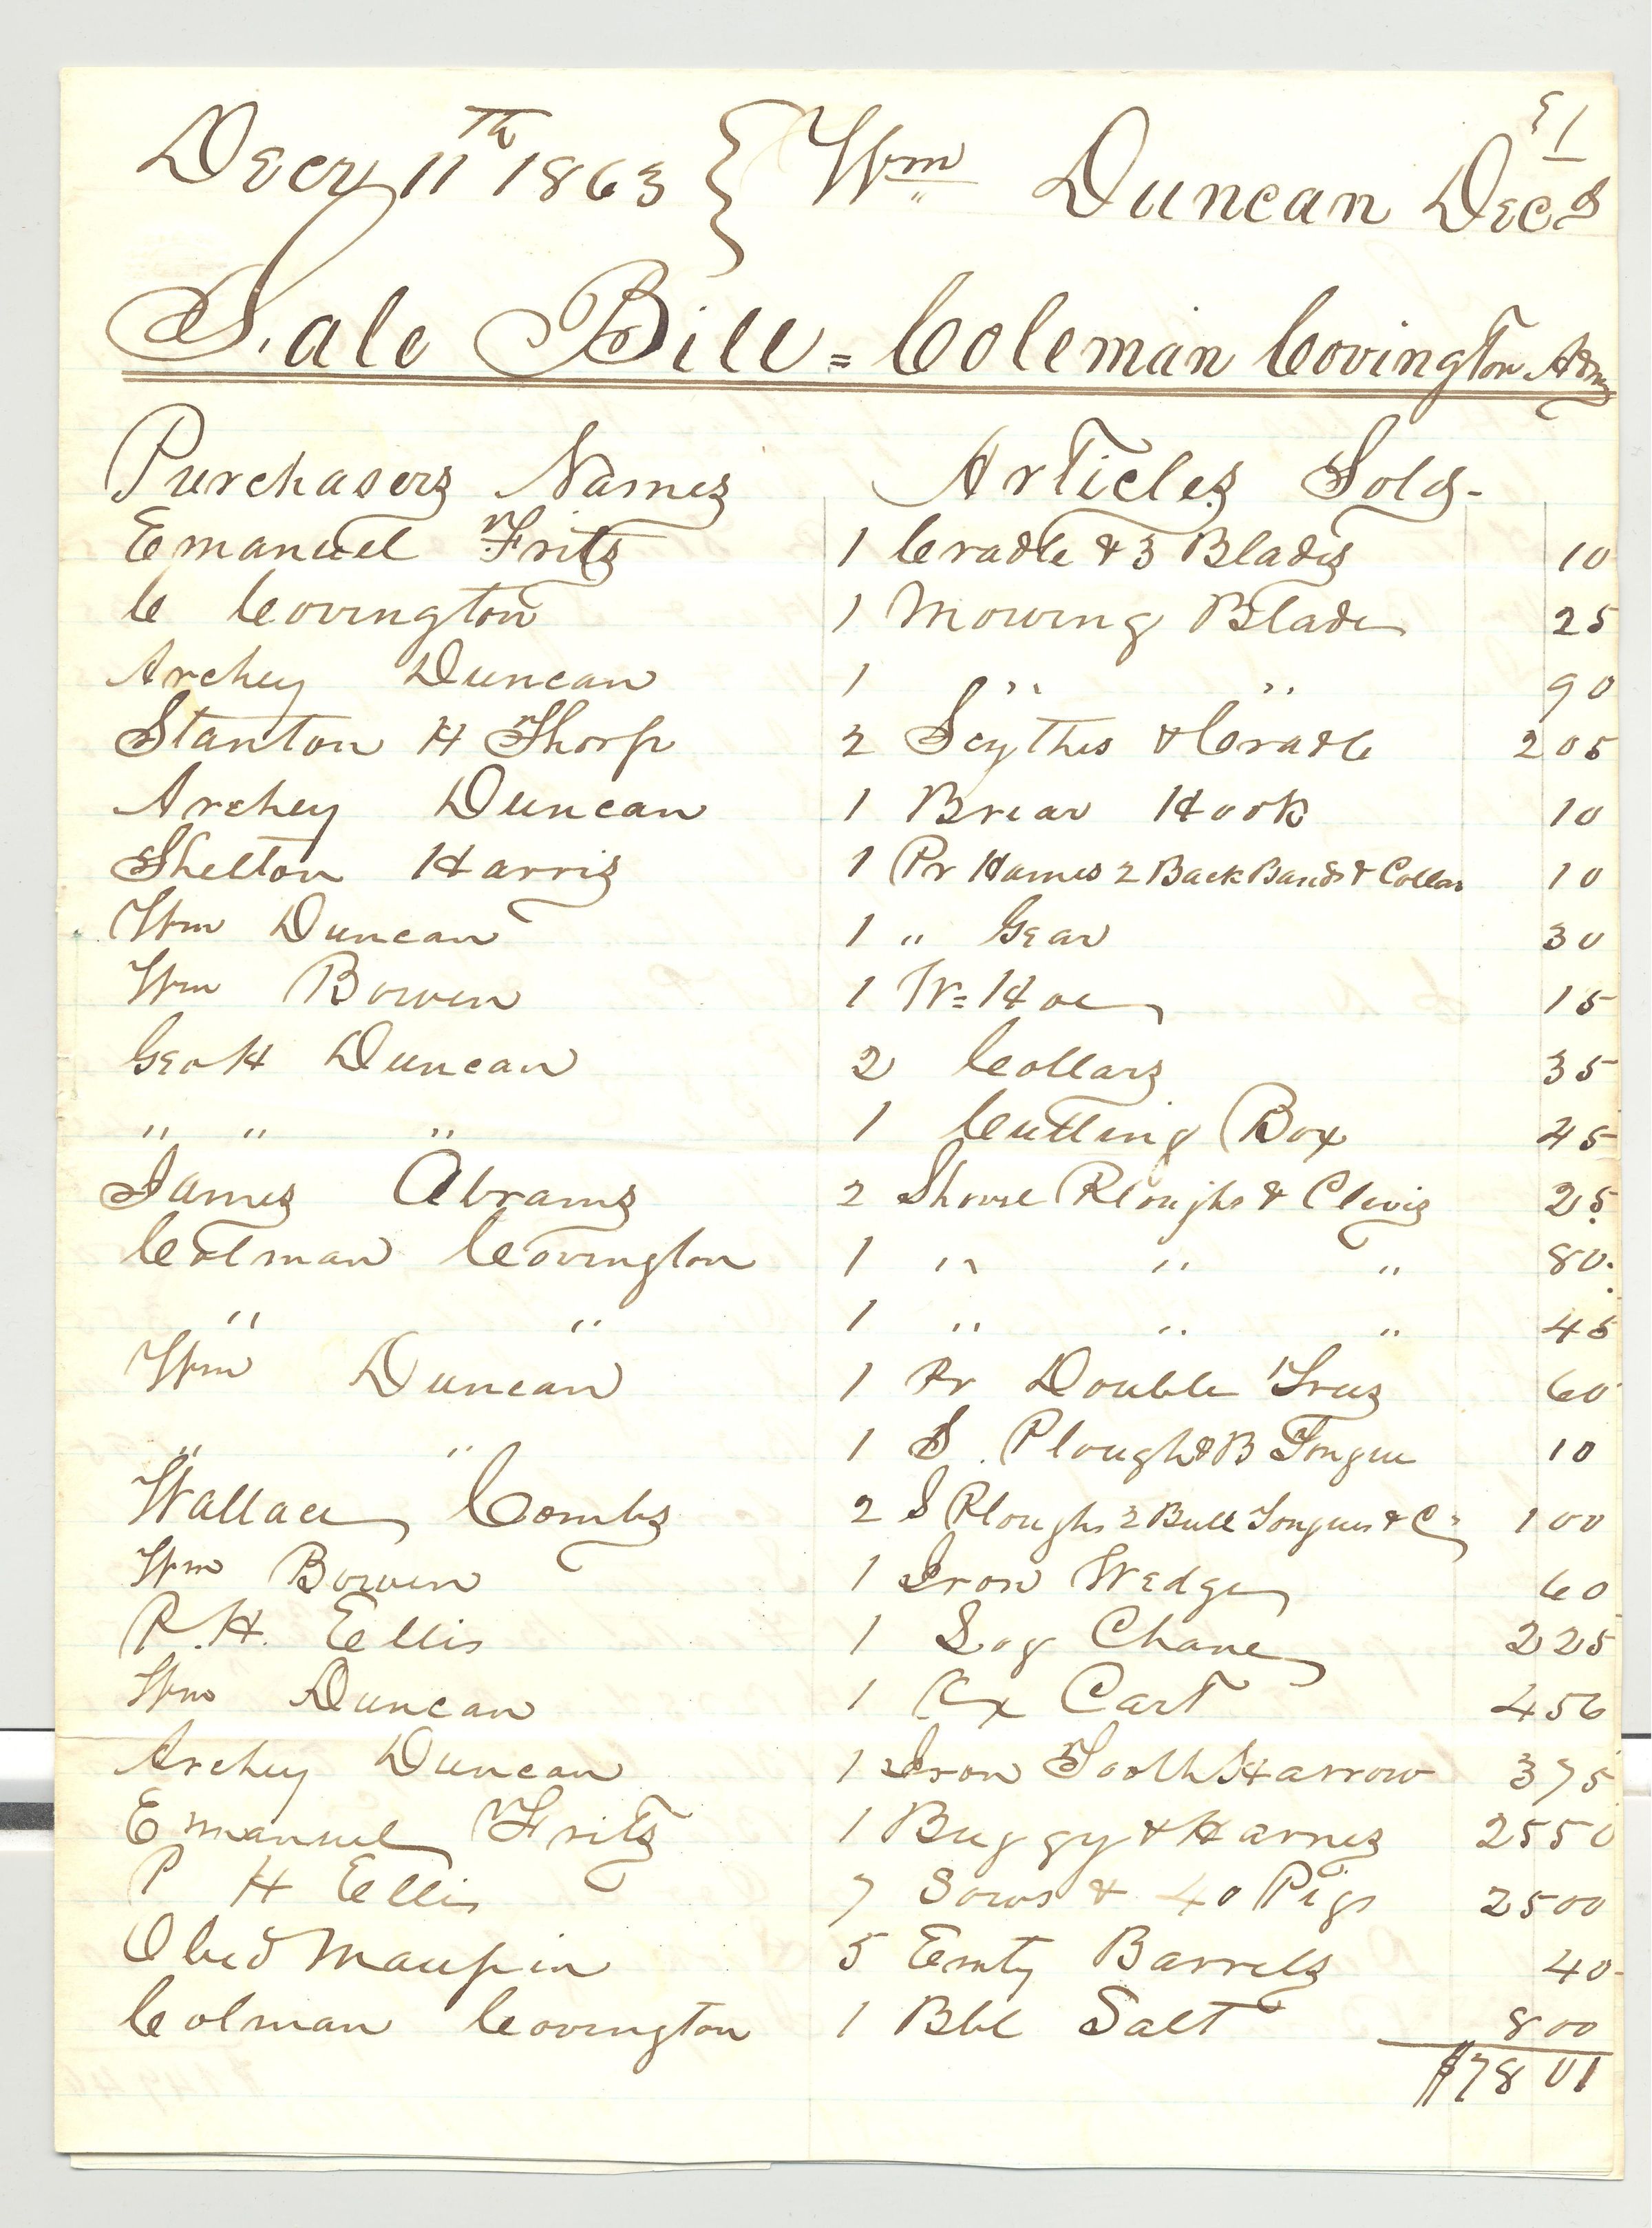 1
Decr 11th 1863 } Wm Duncan Decd
Sale Bill = Coleman Covington Admr
Purchasers Names Articles Sold-
Emanuel Fritz 1 Cradle & 3 Blades 10
C Covington 1 Mowing Blade 25
Archey Duncan 1 " " 90
Stanton H Thorp 2 Scythes & Cradle 2 05
Archey Duncan 1 Briar Hook 10
Shelton Harris 1 Pr Hames 2 Back Bands & Collar 10
Wm Duncan 1 " Gear 30
Wm Bowen 1 W=Hoe 15
Geo H Duncan 2 Collars 35
" " " 1 Cutting Box 45
James Abrams 2 Shovel Ploughs & Clevis 25
Colman Covington 1 " " " 80
" " 1 " " " 45
Wm Duncan 1 Pr Double Trees 60
" " 1 S. Plough & B Tongue 10
Wallace Combs 2 S Ploughs 2 Bull Tongues & C= 1 00
Wm Bowen 1 Iron Wedge 60
P. H. Ellis 1 Log Chane 2 25
Wm Duncan 1 Ox Cart 4 56
Archey Duncan 1 Iron Tooth Harrow 3 75
Emanuel Fritz 1 Buggy & Harnes 25 50
P H Ellis 7 Sows & 40 Pigs 25 00
Obed Maupin 5 Emty Barrels 40
Colman Covington 1 Bbl Salt 8 00
$78 01